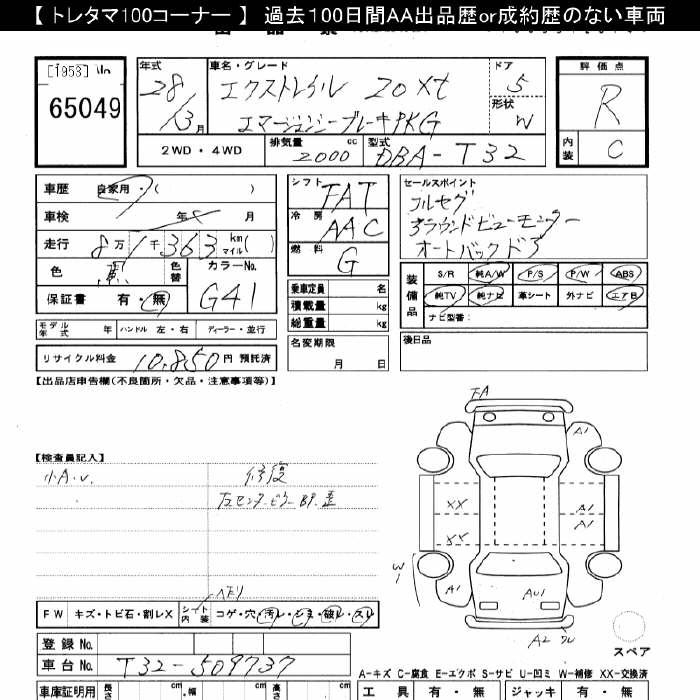 【 トレタマ100コーナー 】 過去100日間AA出品歴or成約歴のない車両
[1953]
65049
年式
28/3月
車名・グレード
エクストレイル 20Xt
エマージェンシーブレーキPKG
ドア
5
形状
W
評価点
R
内装
C
2WD・4WD
排気量
2000 cc
型式
DBA-T32
車歴
自家用・( )
車検
年 月
走行
8万1千363 km マイル( )
色
黒
色替
カラーNo.
G41
保証書
有・無
シフト
FAT
冷房
AAC
燃料
G
乗車定員 名
積載量 kg
総重量 kg
セールスポイント
フルセグ
アラウンドビューモニター
オートバックドア
装備品
S/R 純A/W P/S P/W ABS
純TV 純ナビ 革シート 外ナビ エアB
ナビ型番:
モデル年式 年 ハンドル 左・右 ディーラー・並行
リサイクル料金 10,850円 預託済
名変期限
月 日
後日品
【出品店申告欄(不良箇所・欠品・注意事項等)】
【検査員記入】
小A.U.
修復
左センターピラーBP歪
FA
A1
XX
A1
A1
XX
W1
A1
AU1
A2
スペア
ヘタリ
FW キズ・トビ石・割レX
シート内装 コゲ・穴・汚レ・シミ・破レ・スレ
登録No.
車台No. T32-509737
A-キズ C-腐食 E-エクボ S-サビ U-凹ミ W-補修 XX-交換済
車庫証明用 長さ cm 幅 cm 高さ cm
工具 有・無 ジャッキ 有・無